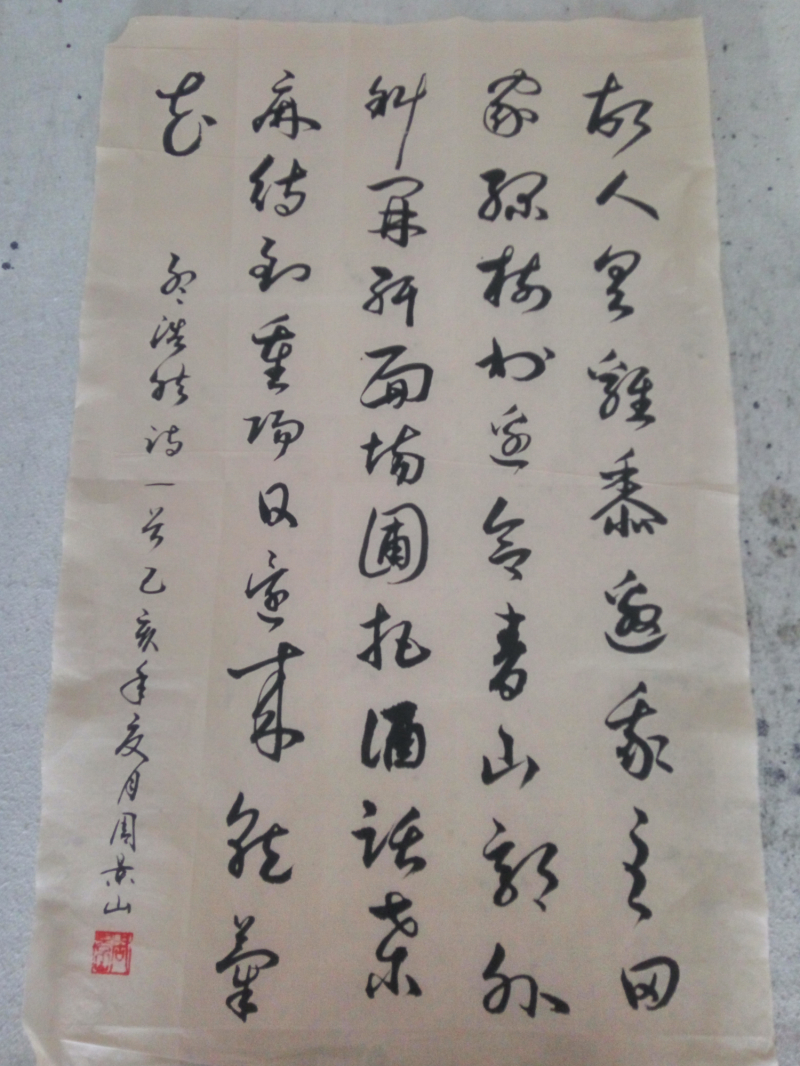 故人具雞黍邀我至田
家綠樹村邊合青山郭外
斜開軒面場圃把酒話桑
麻待到重陽日還來就菊
花
孟浩然詩一首己亥年夏月周景山